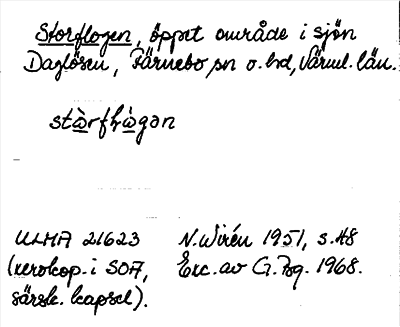 Storflogen, öppet område i sjön
Daglösen, Färnebo sn o. hd, Värml. län.
stὼrfḷὼgan
ULMA 21623 N. Wirén 1951, s. 48
(xerokop. i SOA, Exc. av G. Bg. 1968.
särsk. kapsel).